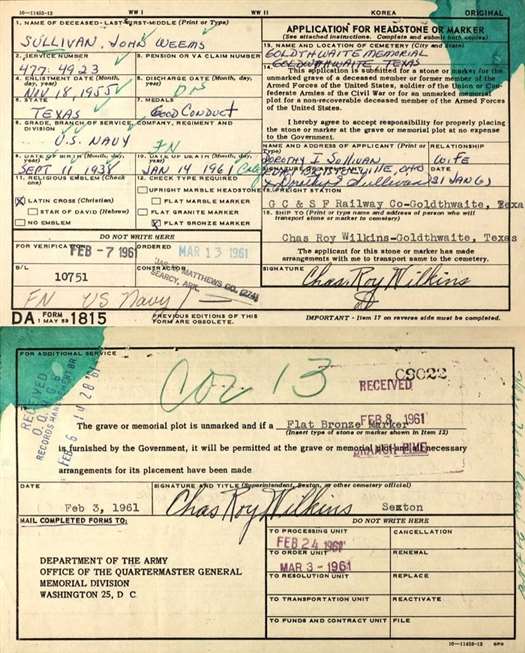 16—11452-12 WW I WW II KOREA ORIGINAL
1. NAME OF DECEASED—LAST-FIRST-MIDDLE (Print or Type)
SULLIVAN, JOHN WEEMS
2. SERVICE NUMBER
477-4923
PENSION OR VA CLAIM NUMBER
ENLISTMENT DATE (Month, day, year)
NOV 18, 1955
DISCHARGE DATE (Month, day, year)
DNS
5. STATE
TEXAS
7. MEDALS
GOOD CONDUCT
GRADE, BRANCH OF SERVICE, COMPANY, REGIMENT AND DIVISION
U.S. NAVY
FN
DATE OF BIRTH (Month, day, year)
SEPT 11, 1938
10. DATE OF DEATH (Month, day, year)
JAN 14 1961
11. RELIGIOUS EMBLEM (Check one)
LATIN CROSS (Christian)
STAR OF DAVID (Hebrew)
NO EMBLEM
12. CHECK TYPE REQUIRED
UPRIGHT MARBLE HEADSTONE
FLAT MARBLE MARKER
FLAT GRANITE MARKER
FLAT BRONZE MARKER
DO NOT WRITE HERE
FOR VERIFICATION
FEB -7 1961
ORDERED
MAR 13 1961
B/L
10751
CONTRACTOR
JAS. H. MATTHEWS CO. (274)
SEARCY, ARK.
FN US Navy
DA FORM 1815
1 MAY 59
PREVIOUS EDITIONS OF THIS
FORM ARE OBSOLETE.
APPLICATION FOR HEADSTONE OR MARKER
(See attached instructions. Complete and submit both copies)
13. NAME AND LOCATION OF CEMETERY (City and State)
GOLDTHWAITE MEMORIAL
GOLDTHWAITE TEXAS
This application is submitted for a stone or marker for the
unmarked grave of a deceased member or former member of the
Armed Forces of the United States, soldier of the Union or Con-
federate Armies of the Civil War or for an unmarked memorial
plot for a non-recoverable deceased member of the Armed Forces
of the United States.
I hereby agree to accept responsibility for properly placing
the stone or marker at the grave or memorial plot at no expense
to the Government.
NAME AND ADDRESS OF APPLICANT (Print or Type)
RELATIONSHIP
DOROTHY I SULLIVAN
WIFE
Dorothy I Sullivan
31 JAN 61
FREIGHT STATION
G C & S F Railway Co-Goldthwaite, Texa
16. SHIP TO (Print or type name and address of person who will
transport stone or marker to cemetery)
Chas Roy Wilkins-Goldthwaite, Texas
The applicant for this stone or marker has made
arrangements with me to transport same to the cemetery.
SIGNATURE
Chas Roy Wilkins
IMPORTANT - Item 17 on reverse side must be completed.
FOR ADDITIONAL SERVICE
RECEIVED
RECORDS MANAGEMENT BR.
FEB 6 10 28 '61
COZ 13
09022
RECEIVED
FEB 8 1961
The grave or memorial plot is unmarked and if a Flat Bronze Marker
(Insert type of stone or marker shown in Item 12)
is furnished by the Government, it will be permitted at the grave or memorial plot and all necessary
arrangements for its placement have been made.
DATE
Feb 3, 1961
SIGNATURE AND TITLE (Superintendent, Sexton, or other cemetery official)
Chas Roy Wilkins Sexton
MAIL COMPLETED FORMS TO:
DEPARTMENT OF THE ARMY
OFFICE OF THE QUARTERMASTER GENERAL
MEMORIAL DIVISION
WASHINGTON 25, D C
DO NOT WRITE HERE
TO PROCESSING UNIT
FEB 24 1961
CANCELLATION
TO ORDER UNIT
MAR 3 - 1961
RENEWAL
TO RESOLUTION UNIT
REPLACE
TO TRANSPORTATION UNIT
REACTIVATE
TO FUNDS AND CONTRACT UNIT
FILE
16—11452-12 GPO